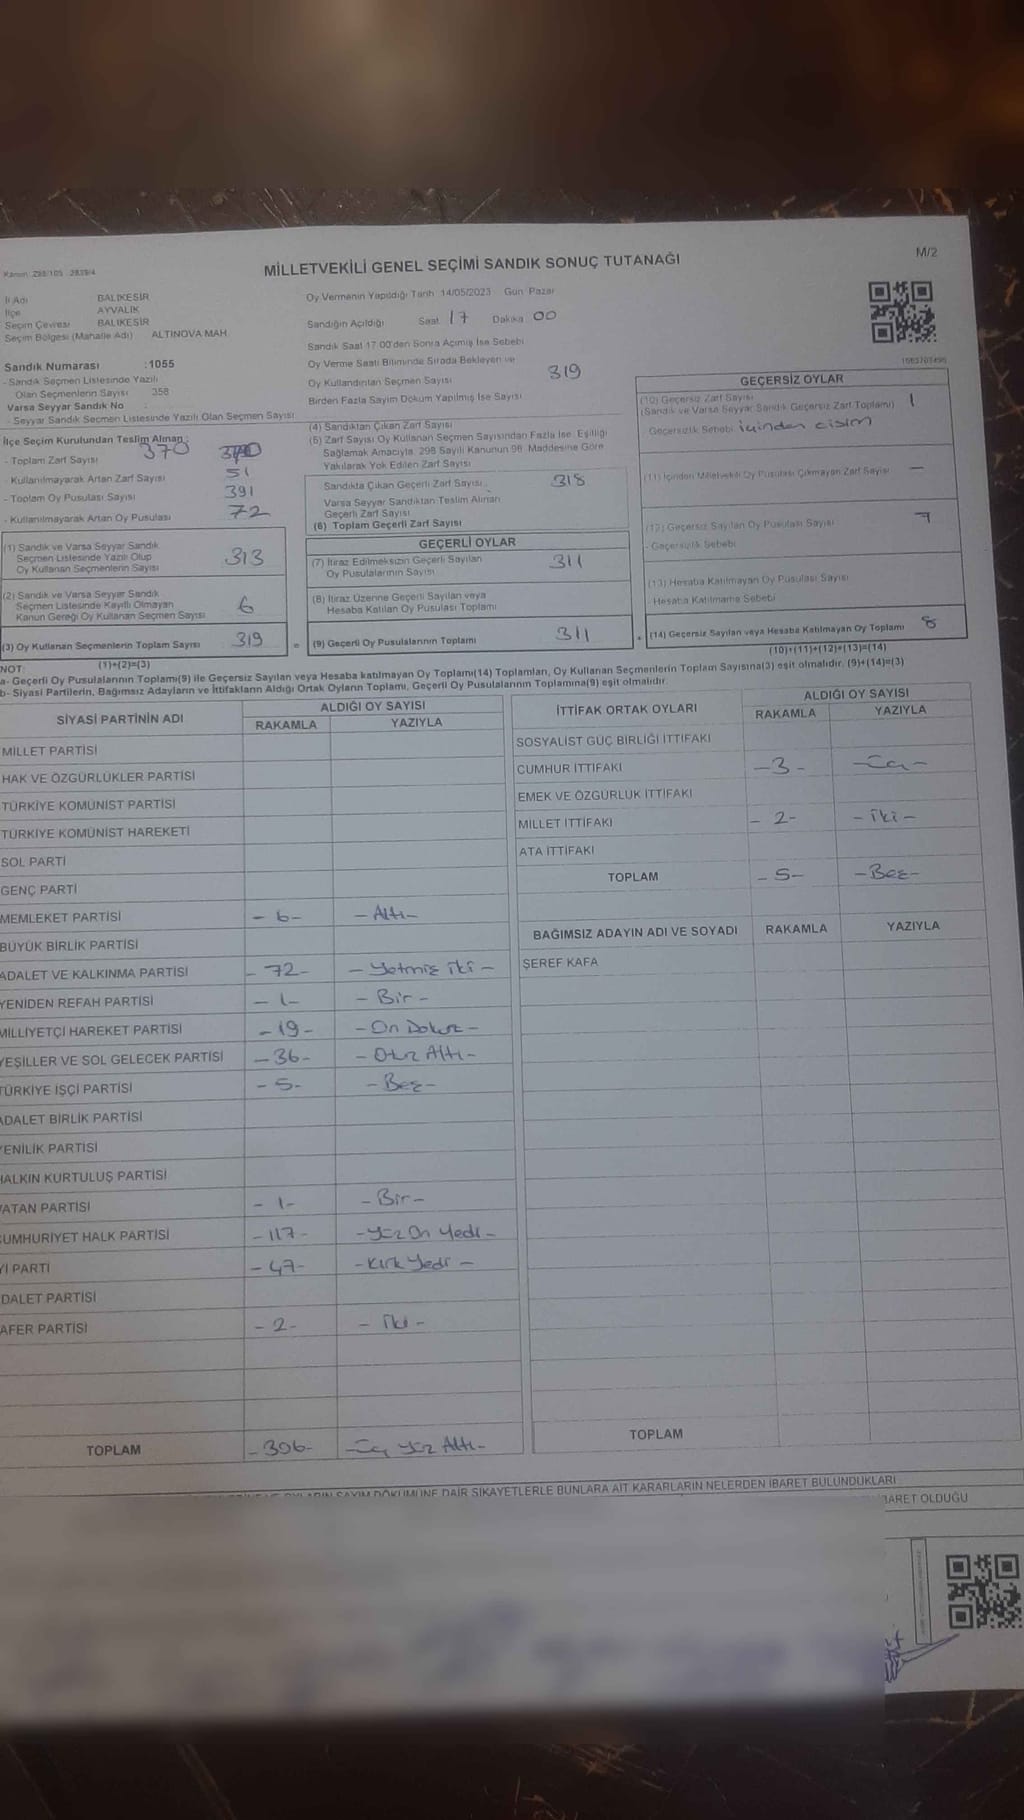 Kanun: 298/105 - 2839/4
MİLLETVEKİLİ GENEL SEÇİMİ SANDIK SONUÇ TUTANAĞI
M/2
İl Adı BALIKESİR
İlçe AYVALIK
Seçim Çevresi BALIKESİR
Seçim Bölgesi (Mahalle Adı) ALTINOVA MAH.
Sandık Numarası :1055
- Sandık Seçmen Listesinde Yazılı
Olan Seçmenlerin Sayısı 358
Varsa Seyyar Sandık No :
- Seyyar Sandık Seçmen Listesinde Yazılı Olan Seçmen Sayısı
İlçe Seçim Kurulundan Teslim Alınan:
- Toplam Zarf Sayısı 370
- Kullanılmayarak Artan Zarf Sayısı 51
- Toplam Oy Pusulası Sayısı 391
- Kullanılmayarak Artan Oy Pusulası 72
(1) Sandık ve Varsa Seyyar Sandık
Seçmen Listesinde Yazılı Olup
Oy Kullanan Seçmenlerin Sayısı 313
(2) Sandık ve Varsa Seyyar Sandık
Seçmen Listesinde Kayıtlı Olmayan
Kanun Gereği Oy Kullanan Seçmen Sayısı 6
(3) Oy Kullanan Seçmenlerin Toplam Sayısı 319 =
(1)+(2)=(3)
Oy Vermenin Yapıldığı Tarih 14/05/2023 Gün Pazar
Sandığın Açıldığı Saat 17 Dakika 00
Sandık Saat 17.00'den Sonra Açılmış İse Sebebi
Oy Verme Saati Bitiminde Sırada Bekleyen ve
Oy Kullandırılan Seçmen Sayısı
Birden Fazla Sayım Döküm Yapılmış İse Sayısı
(4) Sandıktan Çıkan Zarf Sayısı 319
(5) Zarf Sayısı Oy Kullanan Seçmen Sayısından Fazla İse, Eşitliği
Sağlamak Amacıyla, 298 Sayılı Kanunun 98. Maddesine Göre
Yakılarak Yok Edilen Zarf Sayısı
Sandıkta Çıkan Geçerli Zarf Sayısı 318
Varsa Seyyar Sandıktan Teslim Alınan
Geçerli Zarf Sayısı
(6) Toplam Geçerli Zarf Sayısı
GEÇERLİ OYLAR
(7) İtiraz Edilmeksizin Geçerli Sayılan
Oy Pusulalarının Sayısı 311
(8) İtiraz Üzerine Geçerli Sayılan veya
Hesaba Katılan Oy Pusulası Toplamı
(9) Geçerli Oy Pusulalarının Toplamı 311 +
GEÇERSİZ OYLAR
(10) Geçersiz Zarf Sayısı
(Sandık ve Varsa Seyyar Sandık Geçersiz Zarf Toplamı) 1
Geçersizlik Sebebi içinden cisim
(11) İçinden Milletvekili Oy Pusulası Çıkmayan Zarf Sayısı —
(12) Geçersiz Sayılan Oy Pusulası Sayısı 7
- Geçersizlik Sebebi
(13) Hesaba Katılmayan Oy Pusulası Sayısı
- Hesaba Katılmama Sebebi
(14) Geçersiz Sayılan veya Hesaba Katılmayan Oy Toplamı 8
(10)+(11)+(12)+(13)=(14)
NOT:
a- Geçerli Oy Pusulalarının Toplamı(9) ile Geçersiz Sayılan veya Hesaba katılmayan Oy Toplamı(14) Toplamları, Oy Kullanan Seçmenlerin Toplam Sayısına(3) eşit olmalıdır. (9)+(14)=(3)
b- Siyasi Partilerin, Bağımsız Adayların ve İttifakların Aldığı Ortak Oyların Toplamı, Geçerli Oy Pusulalarının Toplamına(9) eşit olmalıdır.
SİYASİ PARTİNİN ADI ALDIĞI OY SAYISI
RAKAMLA YAZIYLA
MİLLET PARTİSİ
HAK VE ÖZGÜRLÜKLER PARTİSİ
TÜRKİYE KOMÜNİST PARTİSİ
TÜRKİYE KOMÜNİST HAREKETİ
SOL PARTİ
GENÇ PARTİ
MEMLEKET PARTİSİ - 6 - - Altı -
BÜYÜK BİRLİK PARTİSİ
ADALET VE KALKINMA PARTİSİ - 72 - - Yetmiş iki -
YENİDEN REFAH PARTİSİ - 1 - - Bir -
MİLLİYETÇİ HAREKET PARTİSİ - 19 - - On Dokuz -
YEŞİLLER VE SOL GELECEK PARTİSİ - 36 - - Otuz Altı -
TÜRKİYE İŞÇİ PARTİSİ - 5 - - Beş -
ADALET BİRLİK PARTİSİ
YENİLİK PARTİSİ
HALKIN KURTULUŞ PARTİSİ
VATAN PARTİSİ - 1 - - Bir -
CUMHURİYET HALK PARTİSİ - 117 - - Yüz On Yedi -
İYİ PARTİ - 47 - - Kırk Yedi -
ADALET PARTİSİ
ZAFER PARTİSİ - 2 - - İki -
TOPLAM - 306 - - Üç Yüz Altı -
İTTİFAK ORTAK OYLARI ALDIĞI OY SAYISI
RAKAMLA YAZIYLA
SOSYALİST GÜÇ BİRLİĞİ İTTİFAKI
CUMHUR İTTİFAKI - 3 - - Üç -
EMEK VE ÖZGÜRLÜK İTTİFAKI
MİLLET İTTİFAKI - 2 - - İki -
ATA İTTİFAKI
TOPLAM - 5 - - Beş -
BAĞIMSIZ ADAYIN ADI VE SOYADI RAKAMLA YAZIYLA
ŞEREF KAFA
TOPLAM
OYLARIN SAYIM DÖKÜMÜNE DAİR ŞİKAYETLERLE BUNLARA AİT KARARLARIN NELERDEN İBARET BULUNDUKLARI
İBARET OLDUĞU